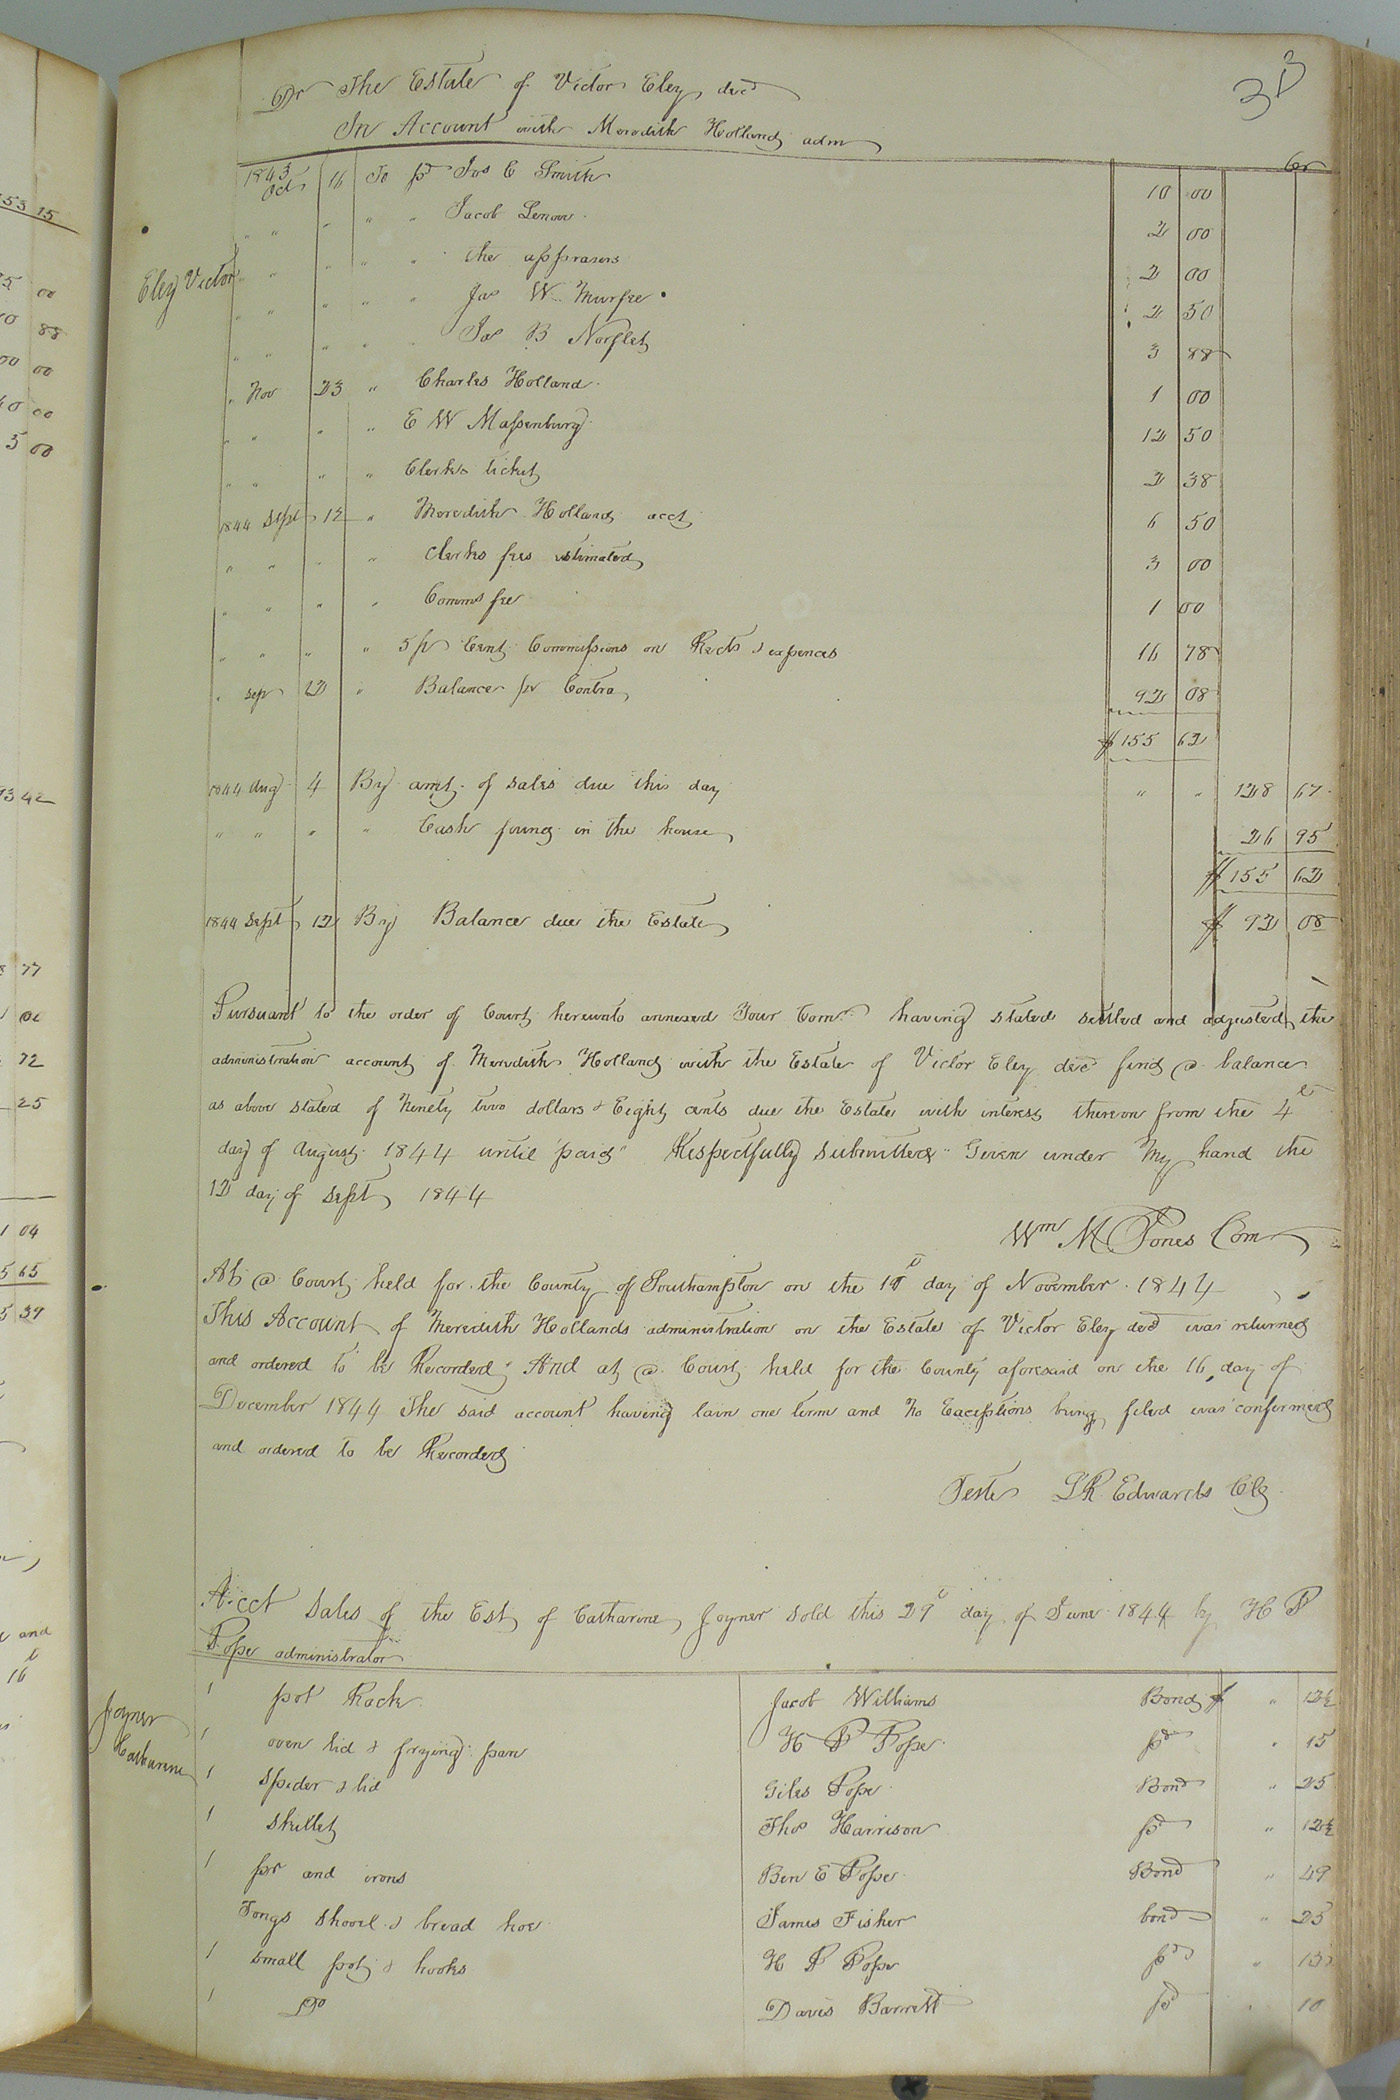 3
Dr The Estate of Victor Eley decd
In Account with Meredith Holland adm
Cr
1843 Oct 16 To pd Jos C Smith 10 00
" " " " " Jacob Lenow 2 00
" " " " " the apprasers 2 00
Eley Victor
" " " " " Jas W Murfee 2 50
" " " " " Jas B Norflet 3 88
" Nov 23 " Charles Holland 1 00
" " " " E W Massenburg 12 50
" " " " Clerks ticket 2 38
1844 Sept 12 " Meredith Holland acct 6 50
" " " " Clerks fees estimated 3 00
" " " " Comms fee 1 00
" " " " 5 pr Cent Commissions on Rects & expences 16 78
" Sep 12 " Balance pr Contra 92 08
$ 155 62
1844 Aug 4 By amt of sales due this day " " 128 67
" " " " Cash found in the house 26 95
$ 155 62
1844 Sept 12 By Balance due the Estate $ 92 08
Pursuant to the order of Court hereunto annexed Your Comr having stated settled and adjusted the
administration account of Meredith Holland with the Estate of Victor Eley decd find a balance
as above stated of Ninety two dollars & Eight cents due the Estate with interest thereon from the 4th
day of August 1844 until paid" Respectfully submitted" Given under My hand the
12 day of Sept 1844
Wm M Jones Com
At a Court held for the County of Southampton on the day of November 1844
This Account of Meredith Hollands administration on the Estate of Victor Eley decd was returned
and ordered to be Recorded" And at a Court held for the County aforesaid on the 16 day of
December 1844 The said account having lain one term and No Exceptions being filed was confirmed
and ordered to be Recorded
Teste LR Edwards Clk
Acct Sales of the Est of Catharine Joyner sold this 29th day of June 1844 by H P
Pope administrator
1 pot Rack Jacob Williams Bond $ " 12½
Joyner Catharine
1 oven lid & frying pan H P Pope pd " 15
1 Spider & lid Giles Pope Bond " 25
1 Skillet Thos Harrison pd " 12½
1 pr and irons Ben E Pope Bond " 49
Tongs shovel & broad hoe James Fisher bond " 25
1 small pot & hooks H P Pope pd "
1 Do Davis Barrett pd " 10